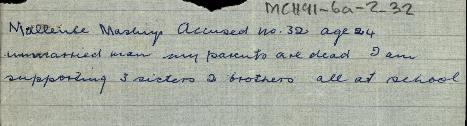 MCH91-6a-2-32
Accused no. 32 age 24
unmarried man my parents are dead I am
supporting 3 sisters 2 brothers all at school